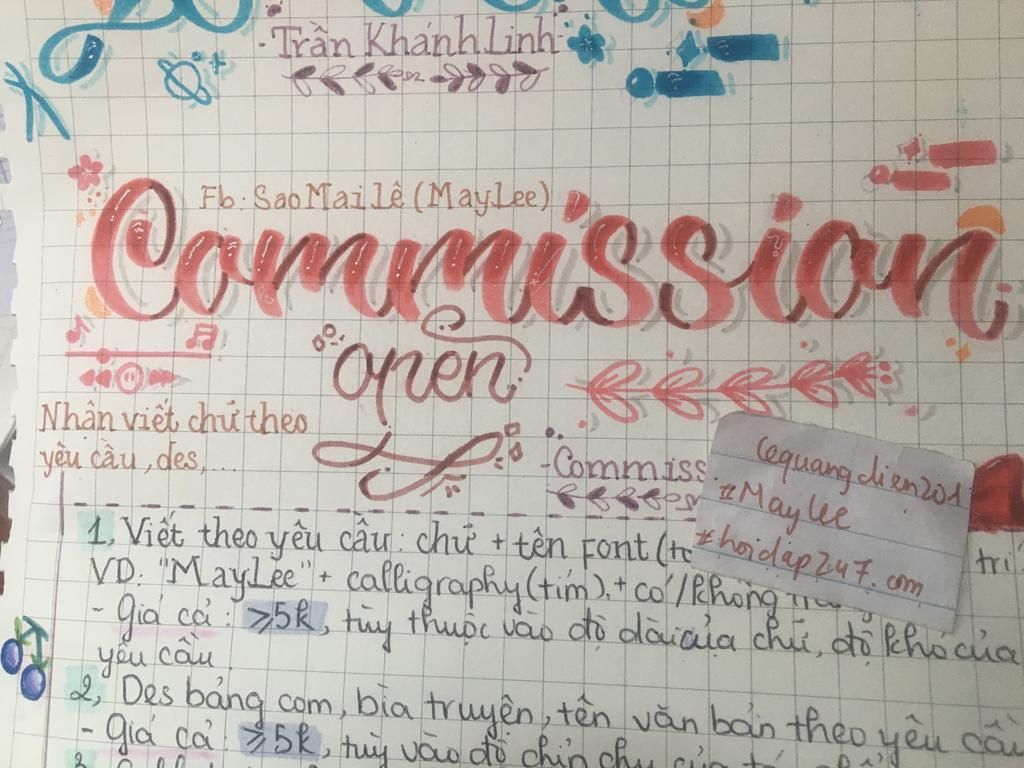 Trần Khánh Linh
Fb: Sao Mai Lê (MayLee)
Commission
open
Nhận viết chữ theo
yêu cầu, des,...
-Commiss
lequangdien201
#MayLee
#hoidap247.com
1, Viết theo yêu cầu: chữ + tên Font (t
trí
VD: "MayLee" + calligraphy (tím), + có/không
- Giá cả: ≥5k, tùy thuộc vào độ dài của chữ, độ khó của
yêu cầu
2, Des bảng com, bìa truyện, tên văn bản theo yêu cầu
- Giá cả: ≥5k, tùy vào độ chỉn chu của
3,